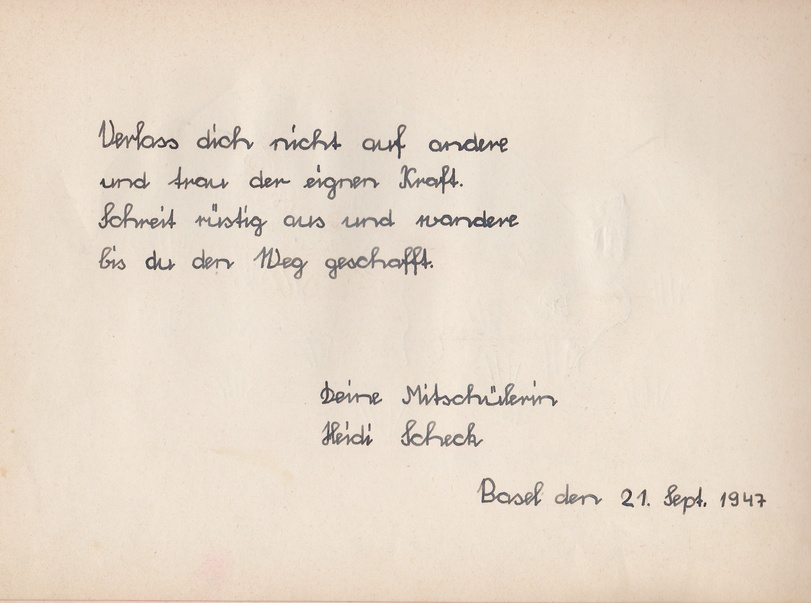 Verlass dich nicht auf andere
und trau der eignen Kraft.
Schreit rüstig aus und wandere
bis du den Weg geschafft.
Deine Mitschülerin
Heidi Scheck
Basel den 21. Sept. 1947